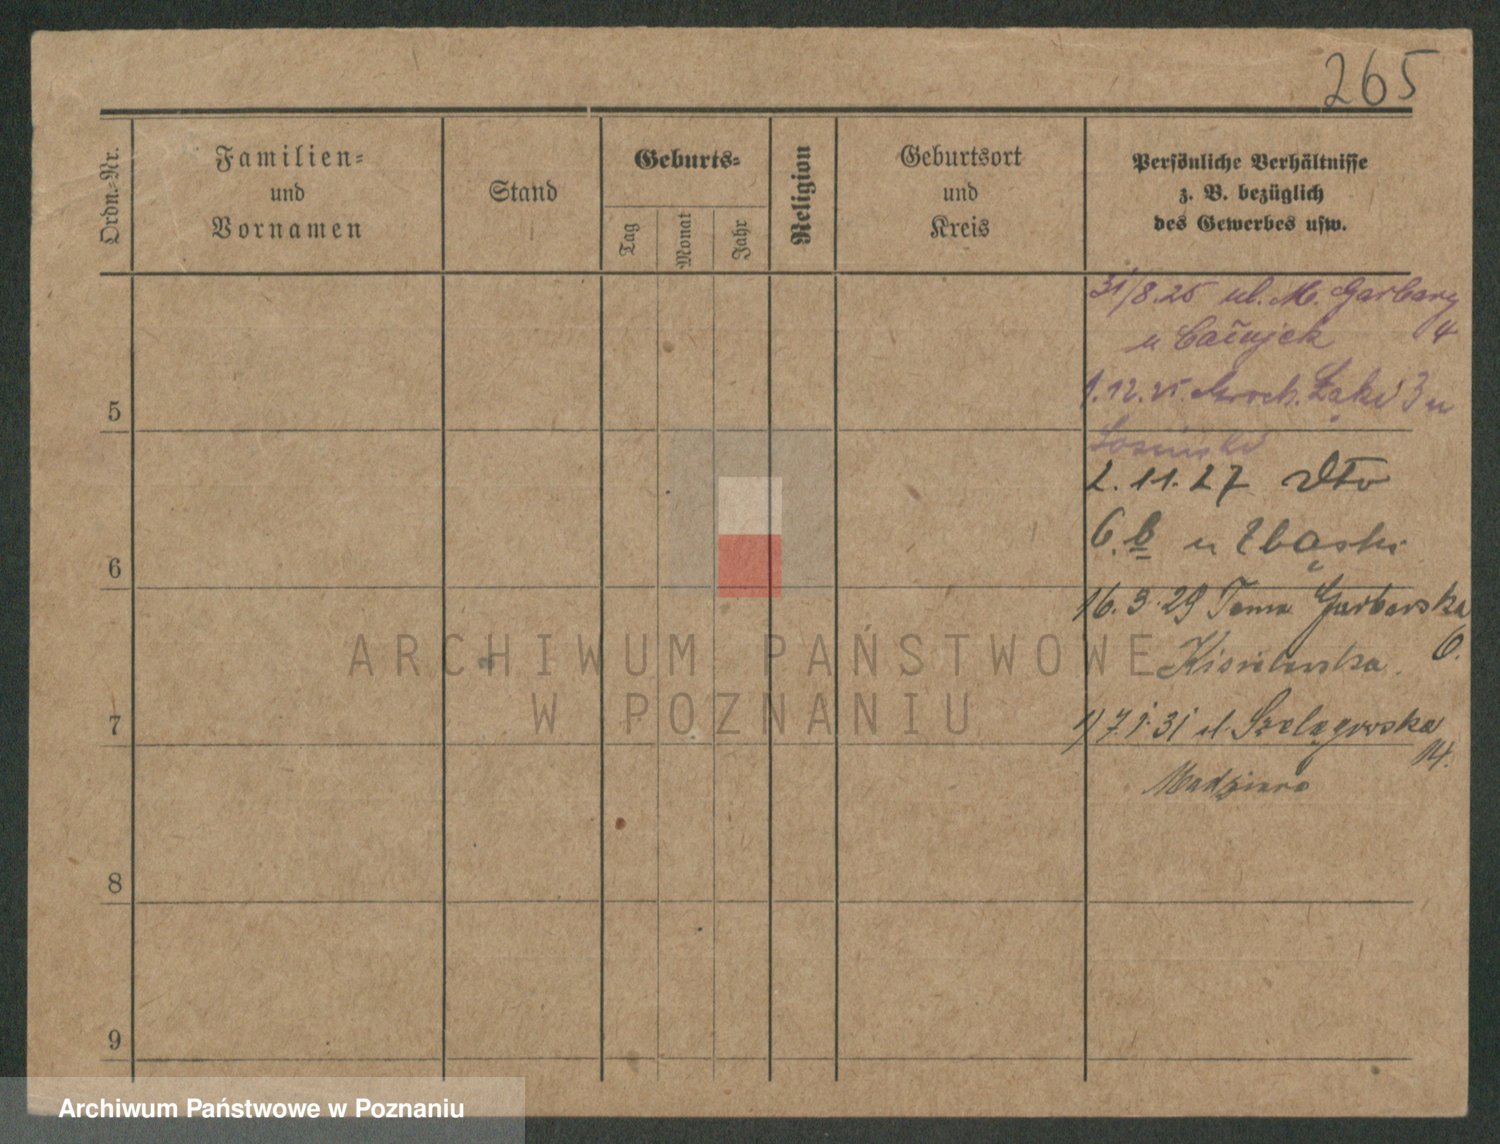 265
Ordn.-Nr.
Familien-
und
Vornamen
Stand
Geburts-
Tag
Monat
Jahr
Religion
Geburtsort
und
Kreis
Persönliche Verhältnisse
z. B. bezüglich
des Gewerbes usw.
31/8.25 ul. M. Garbary
4
u
5
1.12.25. Łąki 3 u
2.11.27 dto
6.b u Zbąski
6
16.3.29 Tama Garbarska
6.
7
17.1.31 ul. Szelągowska
14.
Madziara
8
9
ARCHIWUM PAŃSTWOWE
W POZNANIU
Archiwum Państwowe w Poznaniu